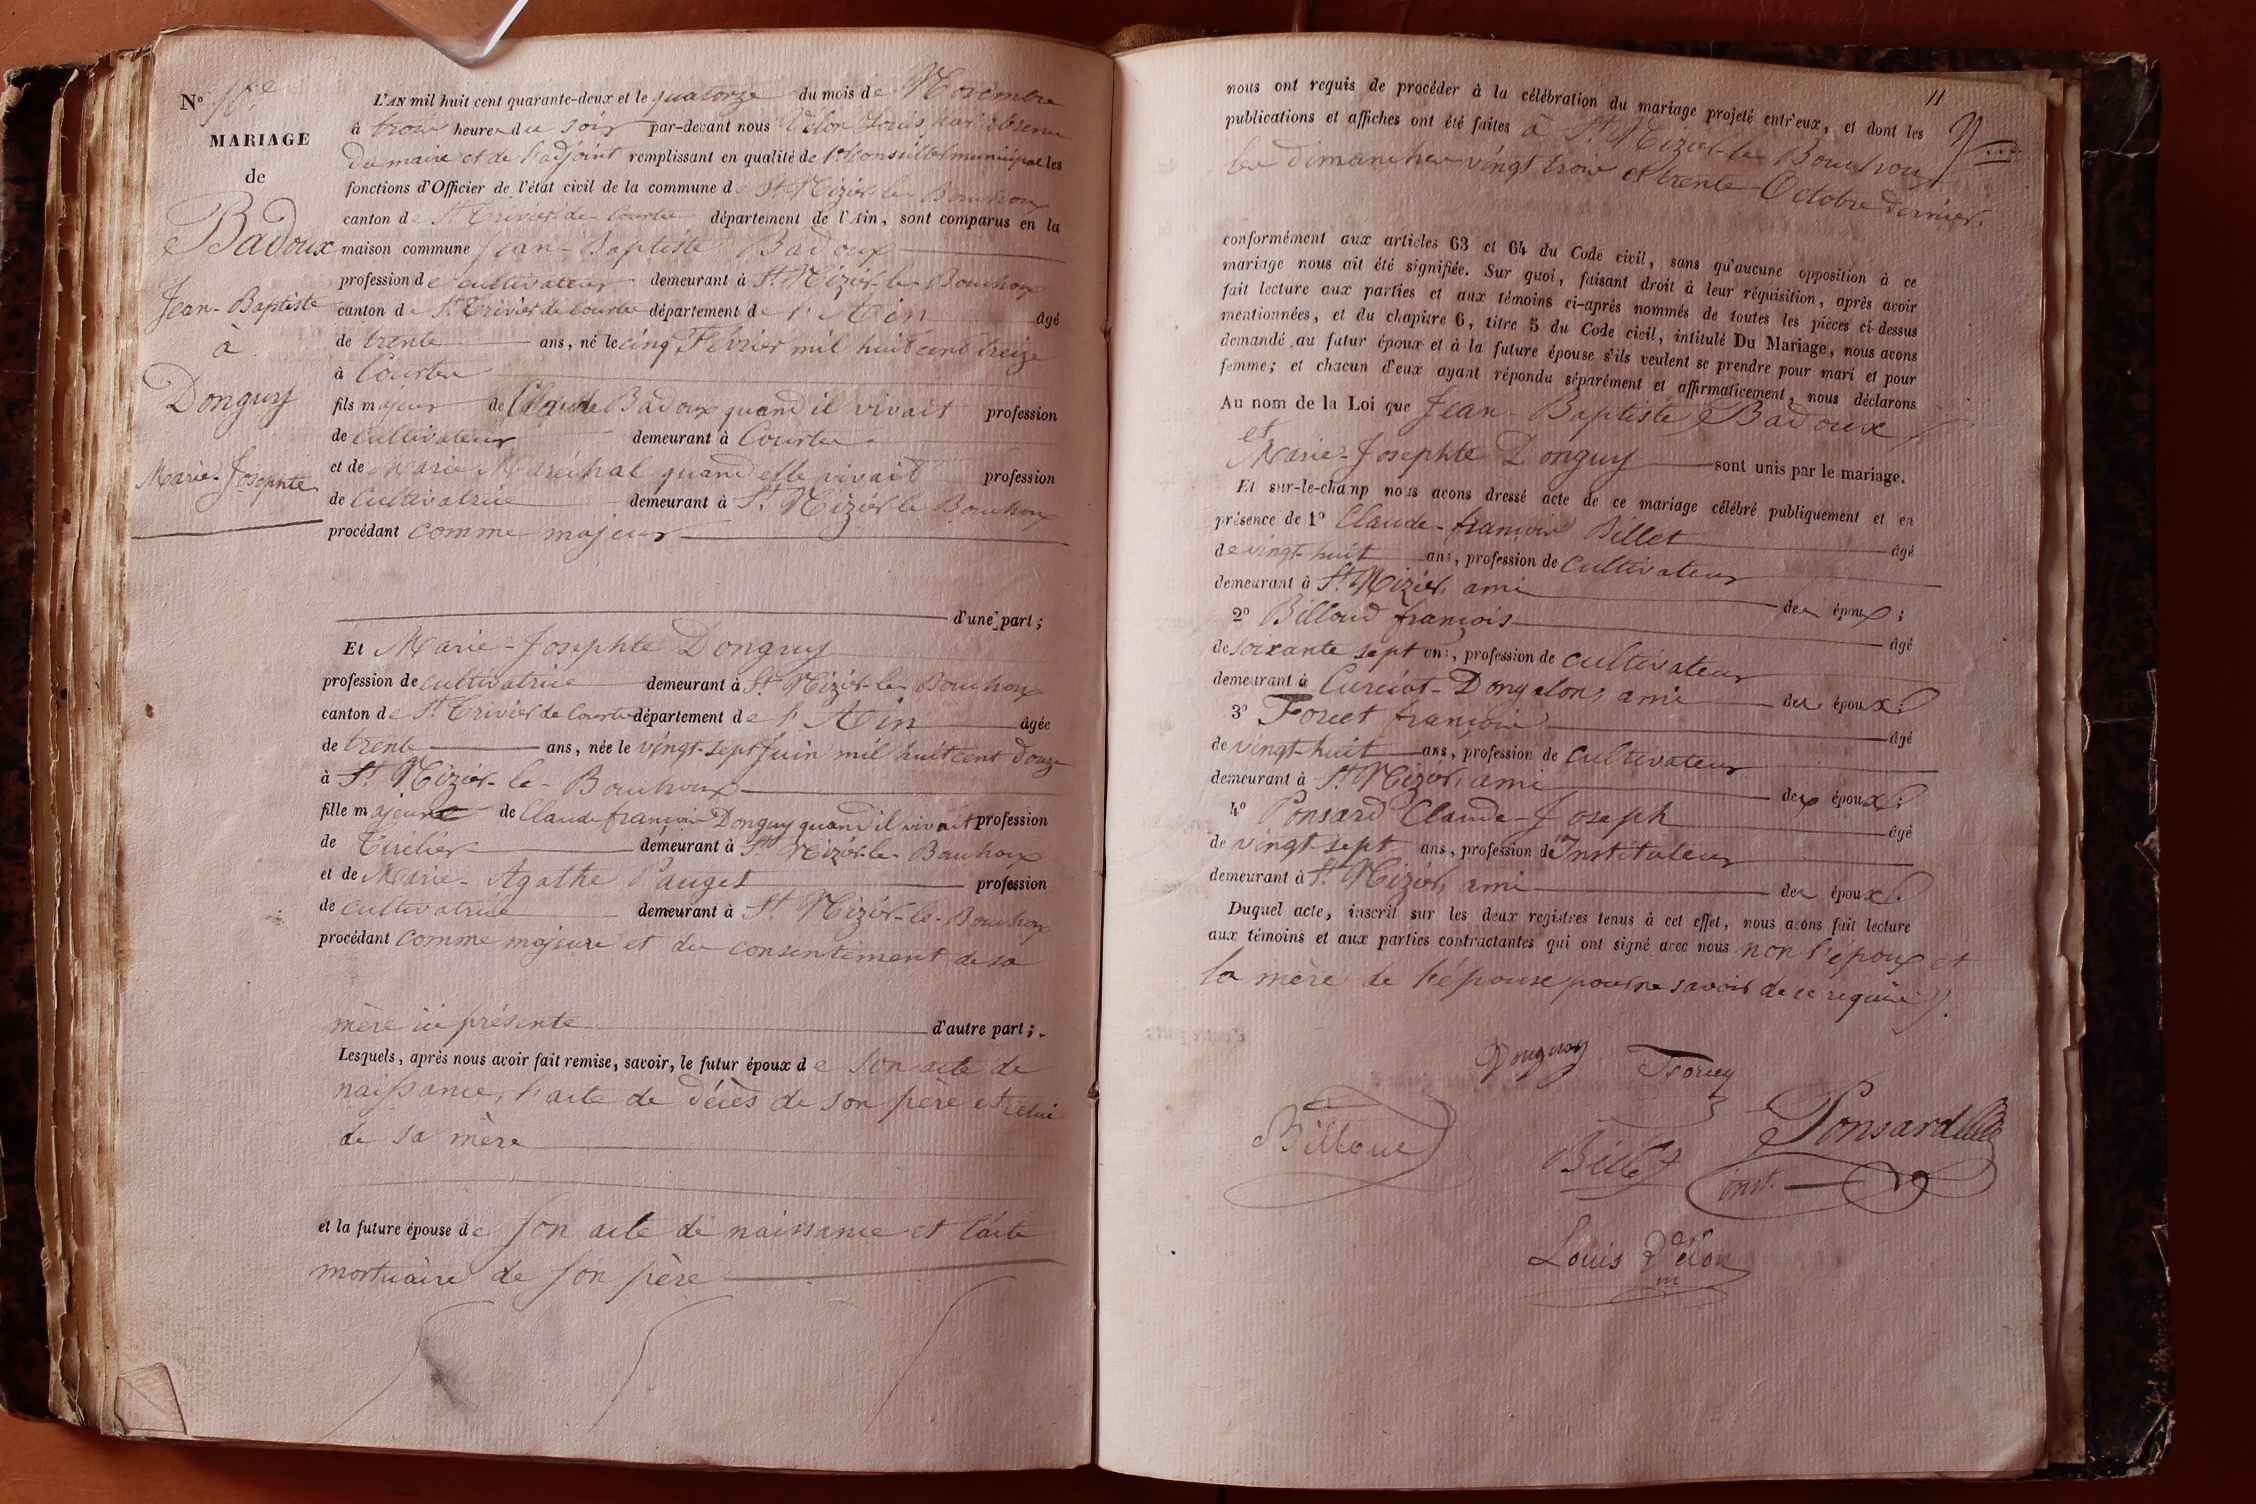 N°
MARIAGE
de
Badoux
Jean-Baptiste
à
Donguy
Marie-Josephte
L'AN mil huit cent quarante-deux et le quatorze du mois de Novembre
à trois heures du soir par-devant nous Velon Louis par absence
du maire et de l'adjoint remplissant en qualité de 1er Conseiller municipal les
fonctions d'Officier de l'état civil de la commune de St Nizier-le-Bouchoux
canton de St Trivier de Courtes département de l'Ain, sont comparus en la
maison commune Jean-Baptiste Badoux
profession de cultivateur demeurant à St Nizier-le-Bouchoux
canton de St Trivier de Courtes département de l'Ain âgé
de trente ans, né le cinq Février mil huit cent treize
à Courtes
fils majeur de Claude Badoux quand il vivait profession
de cultivateur demeurant à Courtes
et de Marie Maréchal quand elle vivait profession
de Cultivatrice demeurant à St Nizier le Bouchoux
procédant comme majeur
d'une part;
Et Marie-Josephte Donguy
profession de cultivatrice demeurant à St Nizier-le-Bouchoux
canton de St Trivier de Courtes département de l'Ain âgée
de trente ans, née le vingt-sept Juin mil huit cent douze
à St Nizier-le-Bouchoux
fille majeure de Claude françois Donguy quand il vivait profession
de demeurant à St Nizier-le-Bouchoux
et de Marie-Agathe Pauget profession
de cultivatrice demeurant à St Nizier-le-Bouchoux
procédant comme majeure et du consentement de sa
mère ici présente d'autre part;
Lesquels, après nous avoir fait remise, savoir, le futur époux de son acte de
naissance, l'acte de décès de son père et celui
de sa mère
et la future épouse de son acte de naissance et l'acte
mortuaire de son père
11
nous ont requis de procéder à la célébration du mariage projeté entr'eux, et dont les
publications et affiches ont été faites à St Nizier-le-Bouchoux
les dimanches vingt trois et trente Octobre dernier.
conformément aux articles 63 et 64 du Code civil, sans qu'aucune opposition à ce
mariage nous ait été signifiée. Sur quoi, faisant droit à leur réquisition, après avoir
fait lecture aux parties et aux témoins ci-après nommés de toutes les pièces ci-dessus
mentionnées, et du chapitre 6, titre 5 du Code civil, intitulé Du Mariage, nous avons
demandé au futur époux et à la future épouse s'ils veulent se prendre pour mari et pour
femme; et chacun d'eux ayant répondu séparément et affirmativement, nous déclarons
Au nom de la Loi que Jean-Baptiste Badoux
et
Marie-Josephte Donguy sont unis par le mariage.
Et sur-le-champ nous avons dressé acte de ce mariage célébré publiquement et en
présence de 1° Claude-françois Billet âgé
de vingt-huit ans, profession de cultivateur
demeurant à St Nizier, ami des époux;
2° Billoud françois âgé
de soixante sept ans, profession de cultivateur
demeurant à Curciat-Dongalon, ami des époux.
3° Foret françois âgé
de vingt-huit ans, profession de cultivateur
demeurant à St Nizier, ami des époux;
4° Ponsard Claude-Joseph âgé
de vingt-sept ans, profession de Instituteur
demeurant à St Nizier, ami des époux.
Duquel acte, inscrit sur les deux registres tenus à cet effet, nous avons fait lecture
aux témoins et aux parties contractantes qui ont signé avec nous non l'époux et
la mère de l'épouse pour ne savoir de ce requis.
Donguy
Billoud
Billet
Ponsard
inst.
Louis Velon